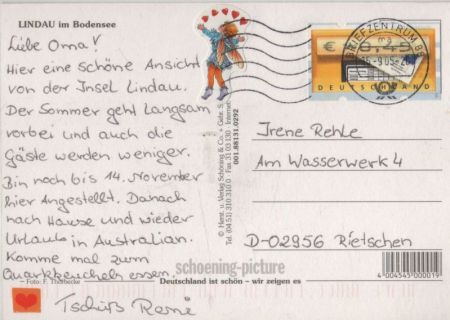 LINDAU im Bodensee
Liebe Oma!
Hier eine schöne Ansicht
von der Insel Lindau.
Der Sommer geht Langsam
vorbei und auch die
Gäste werden weniger.
Bin noch bis 14. November
hier Angestellt. Danach
nach Hause und wieder
Urlaub in Australian.
Komme mal zum
Quarkkeucheln essen.
Tschüß René
Foto: F. Thorbecke
schoening-picture
Deutschland ist schön – wir zeigen es
© Herst. u. Verlag Schöning & Co. + Gebr. S
Tel. (04 51) 310 31 0 · Fax 31 03 130 · Internet:
001.88131.0292
BRIEFZENTRUM
DEUTSCHLAND
Irene Rehle
Am Wasserwerk 4
D-02956 Rietschen
4 004545 000019